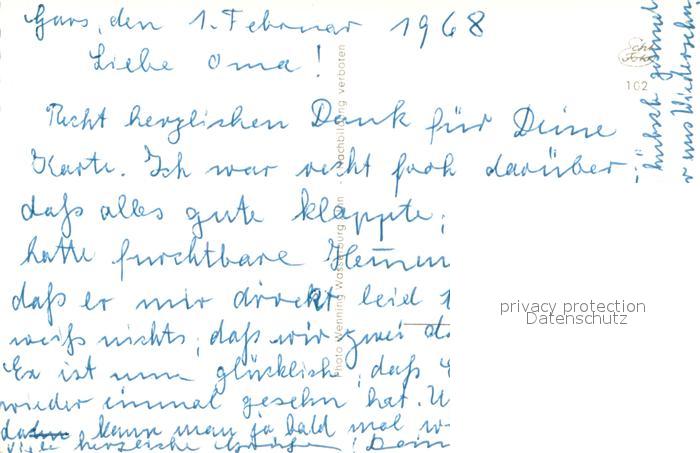 Gars, den 1. Februar 1968
Liebe Oma!
Recht herzlichen Dank für Deine
Karte. Ich war recht froh darüber,
daß alles gute klappte;
hatte furchtbare Hemm
daß er mir direkt leid
weiß nichts, daß wir zwei
Er ist nun glücklich, daß
wieder einmal gesehn hat. U
kann man ja bald mal
Viele herzliche Grüße! Dein
hübsch gesund
Wiedersehn
Photo Wenning Wasserburg Inn - Nachbildung verboten
Echt
Foto
102
privacy protection
Datenschutz